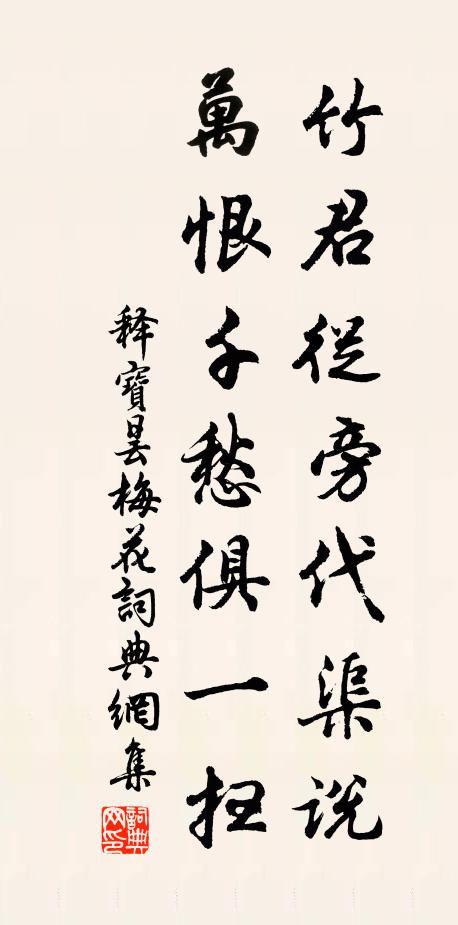 竹君從旁代渠說
萬恨千愁俱一扫
释寶曇梅花詞典網集
詞典
网印